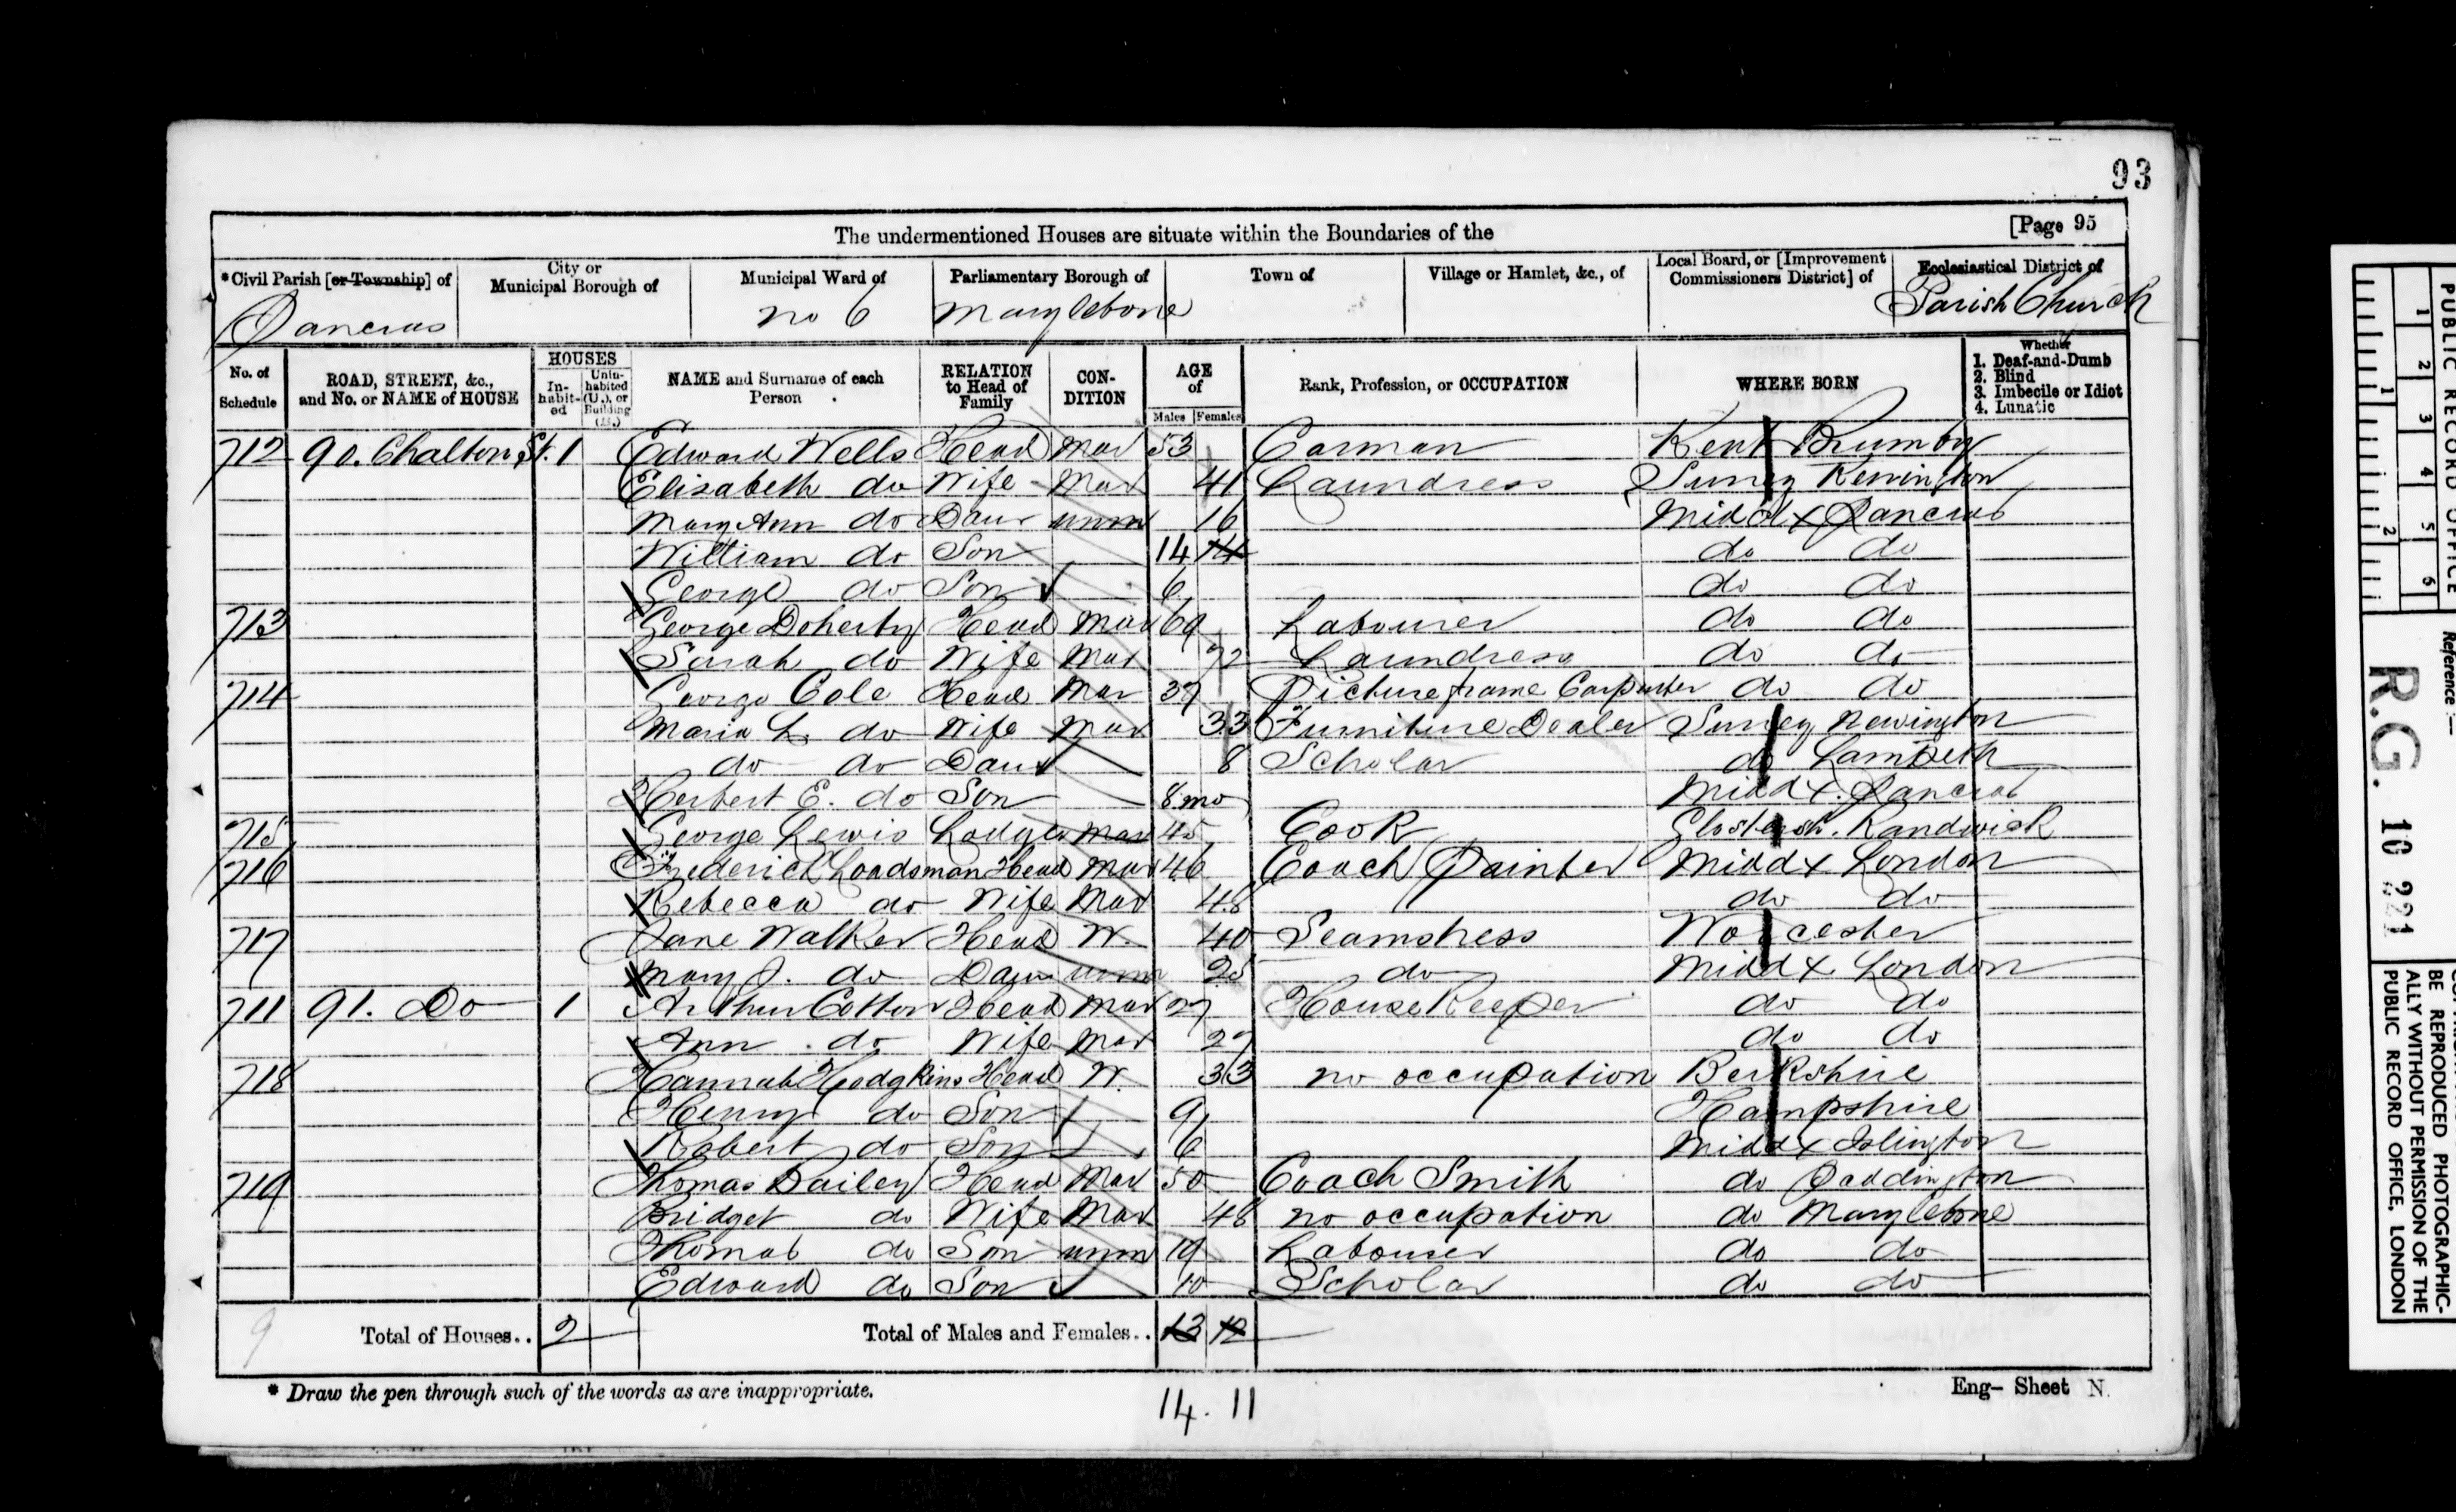 93
The undermentioned Houses are situate within the Boundaries of the [Page 95
*Civil Parish [or Township] of City or Municipal Borough of Municipal Ward of Parliamentary Borough of Town of Village or Hamlet, &c., of Local Board, or [Improvement Commissioners District] of Ecclesiastical District of
Pancras no 6 Marylebone Parish Church
No. of Schedule ROAD, STREET, &c., and No. or NAME of HOUSE HOUSES In-habit-ed Unin-habited (U.), or Building (B.) NAME and Surname of each Person RELATION to Head of Family CON-DITION AGE of Males Females Rank, Profession, or OCCUPATION WHERE BORN Whether 1. Deaf-and-Dumb 2. Blind 3. Imbecile or Idiot 4. Lunatic
712 90. Chalton St. 1 Edward Wells Head Mar 53 Carman Kent
Elisabeth do Wife Mar 41 Laundress Surrey Kennington
Mary Ann do Daur unm 16 Middx Pancras
William do Son 14 14 do do
George do Son 6 do do
713 George Doherty Head Mar 69 Labourer do do
Sarah do Wife Mar 72 Laundress do do
714 George Cole Head Mar 37 Picture frame Carpenter do do
Maria L. do Wife Mar 33 Furniture Dealer Surrey Newington
do do Daur 8 Scholar do Lambeth
Herbert E. do Son 8 mo Middx. Pancras
715 George Lewis Lodger Mar 45 Cook Glostersh. Randwick
716 Frederick Loadsman Head Mar 46 Coach Painter Middx London
Rebecca do Wife Mar 48 do do
717 Jane Walker Head W. 40 Seamstress Worcester
Mary J. do Daur unm 25 do Middx London
711 91. Do 1 Arthur Cotton Head Mar 27 House Keeper do do
Ann do Wife Mar 27 do do
718 Hannah Hodgkins Head W. 33 no occupation Berkshire
Henry do Son 9 Hampshire
Robert do Son 6 Middx Islington
719 Thomas Dailey Head Mar 50 Coach Smith do Paddington
Bridget do Wife Mar 48 no occupation do Marylebone
Thomas do Son unm 19 Labourer do do
Edward do Son 10 Scholar do do
9 Total of Houses.. 2 Total of Males and Females.. 13 12
* Draw the pen through such of the words as are inappropriate. Eng- Sheet N.
14. 11
PUBLIC RECORD OFFICE
1 2 3 4 5 6
1 2
Reference:-
R.G. 10 221
BE REPRODUCED PHOTOGRAPHIC-
ALLY WITHOUT PERMISSION OF THE
PUBLIC RECORD OFFICE, LONDON